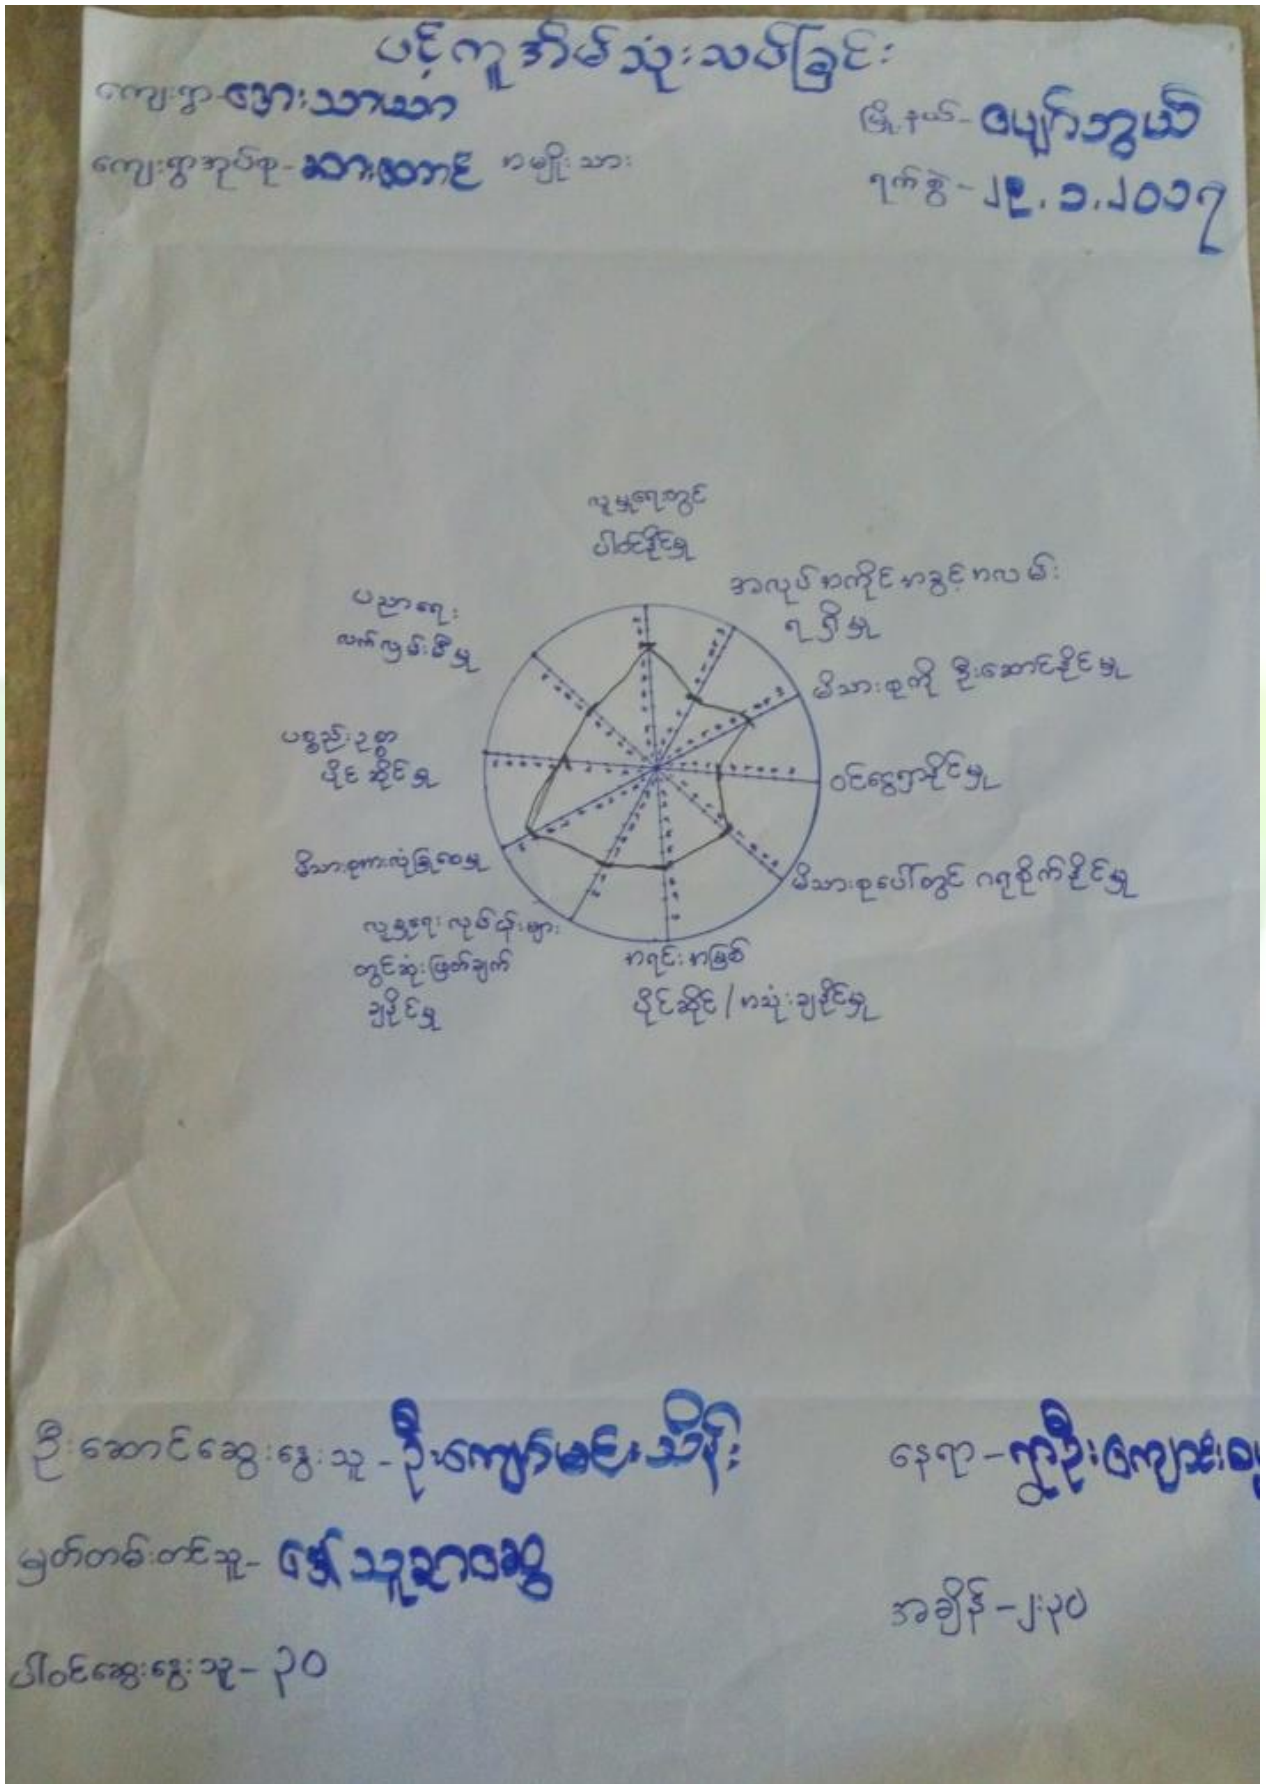 ပင့်ကူအိမ်သုံးသပ်ခြင်း
ကျေးရွာ-အေးသာယာ
မြို့နယ်-ပျော်ဘွယ်
ကျေးရွာအုပ်စု- အမျိုးသား
ရက်စွဲ-၂၉.၁.၂၀၁၇
လူမှုရေးတွင်
ပါဝင်နိုင်မှု
အလုပ်အကိုင်အခွင့်အလမ်း
ရရှိမှု
မိသားစုကို ဦးဆောင်နိုင်မှု
ဝင်ငွေရှာနိုင်မှု
မိသားစုပေါ်တွင် ဂရုစိုက်နိုင်မှု
အရင်းအမြစ်
ပိုင်ဆိုင်/အသုံးချနိုင်မှု
လူမှုရေးလုပ်ငန်းများ
တွင်ဆုံးဖြတ်ချက်
ချနိုင်မှု
မိသားစုစားလုံခြုံစေမှု
ပစ္စည်းဥစ္စာ
ပိုင်ဆိုင်မှု
ပညာရေး
လက်လှမ်းမီမှု
ဦးဆောင်ဆွေးနွေးသူ-ဦးကျော်မင်းသိန်း
နေရာ-ရွာဦးကျောင်း
မှတ်တမ်းတင်သူ-ဒေါ်သူဇာဆွေ
အချိန်-၂:၃၀
ပါဝင်ဆွေးနွေးသူ-၃၀